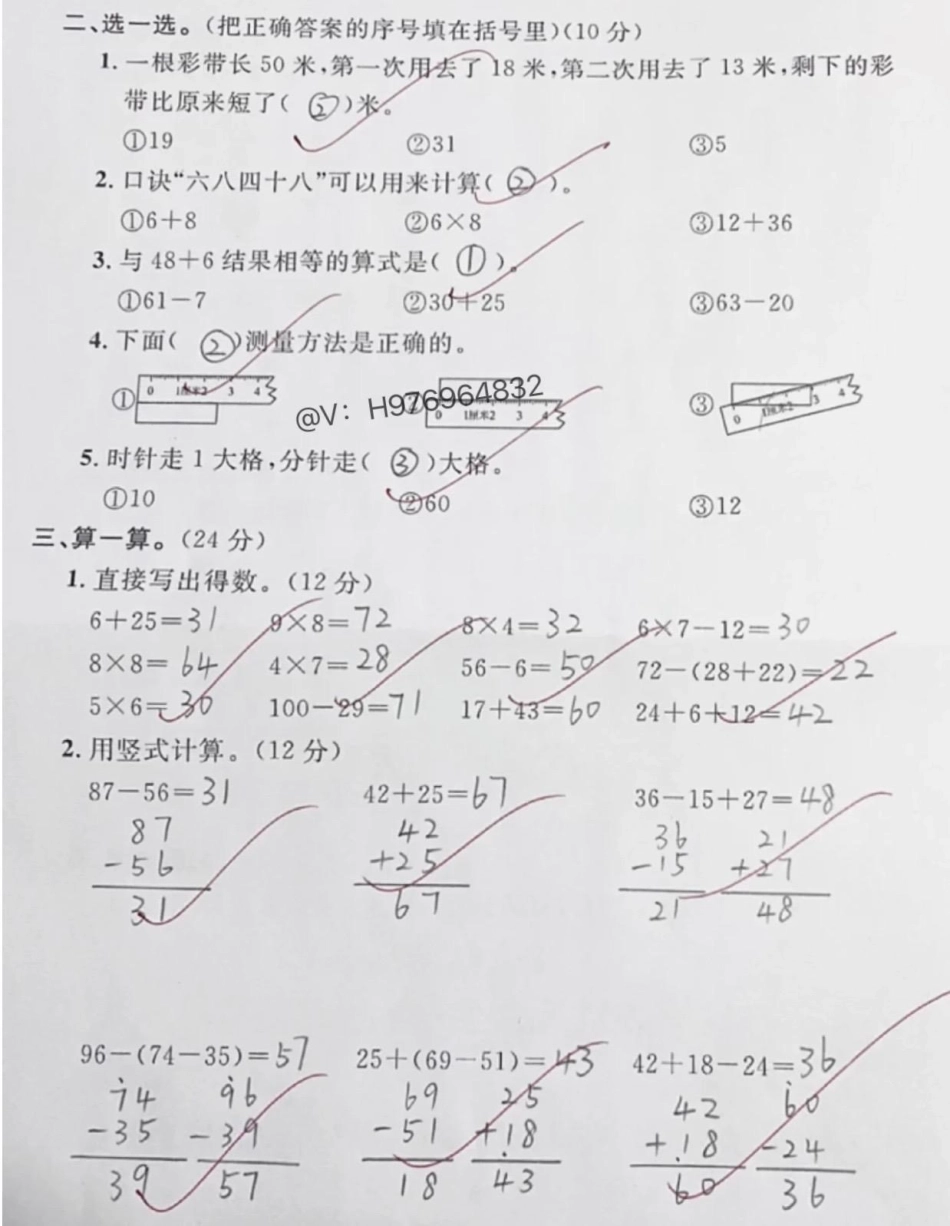 二、选一选。(把正确答案的序号填在括号里)(10 分)
1. 一根彩带长 50 米,第一次用去了 18 米,第二次用去了 13 米,剩下的彩
带比原来短了( ②)米。
①19 ②31 ③5
2. 口诀“六八四十八”可以用来计算( ② )。
①6+8 ②6×8 ③12+36
3. 与 48+6 结果相等的算式是( ① )。
①61-7 ②30+25 ③63-20
4. 下面( ② )测量方法是正确的。
① 0 1厘米2 3 4 ② 0 1厘米2 3 4 ③ 0 1厘米2 3 4
@V: H976964832
5. 时针走 1 大格,分针走( ③ )大格。
①10 ②60 ③12
三、算一算。(24 分)
1. 直接写出得数。(12 分)
6+25=31 9×8=72 8×4=32 6×7-12=30
8×8=64 4×7=28 56-6=50 72-(28+22)=22
5×6=30 100-29=71 17+43=60 24+6+12=42
2. 用竖式计算。(12 分)
87-56=31 42+25=67 36-15+27=48
87 42 36 21
-56 +25 -15 +27
31 67 21 48
96-(74-35)=57 25+(69-51)=43 42+18-24=36
74 96 69 25 42 60
-35 -39 -51 +18 +18 -24
39 57 18 43 60 36